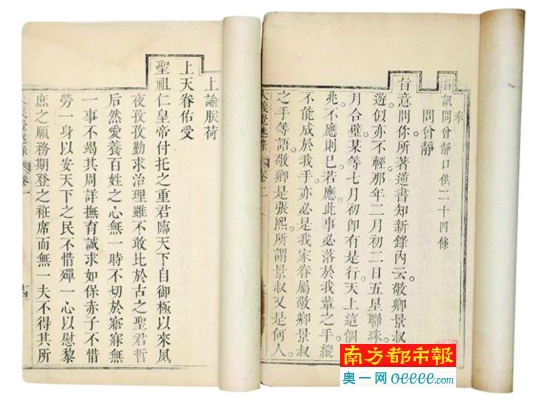 奉
旨訊問曾靜口供二十四條
問曾靜
旨意問你所著逆書知新錄內云敬卿景叔
遊似亦不輕那年二月初二日五星聯珠
月合璧某等七月初卽有是行天上這個
兆不應則已若應此事必落於我輩之手縱
不能成於我手亦必是我家眷屬敬卿景叔
之手等語敬卿是張熙所謂景叔又是何人
上諭朕荷
上天眷佑受
聖祖仁皇帝付托之重君臨天下自御極以來夙
夜孜孜勤求治理雖不敢比於古之聖君哲
后然愛養百姓之心無一時不切於寤寐無
一事不竭其周詳撫育誠求如保赤子不惜
勞一身以安天下之民不惜殫一心以慰黎
庶之願務期登之衽席而無一夫不得其所
南方都市報
奧一网 oeeee.com